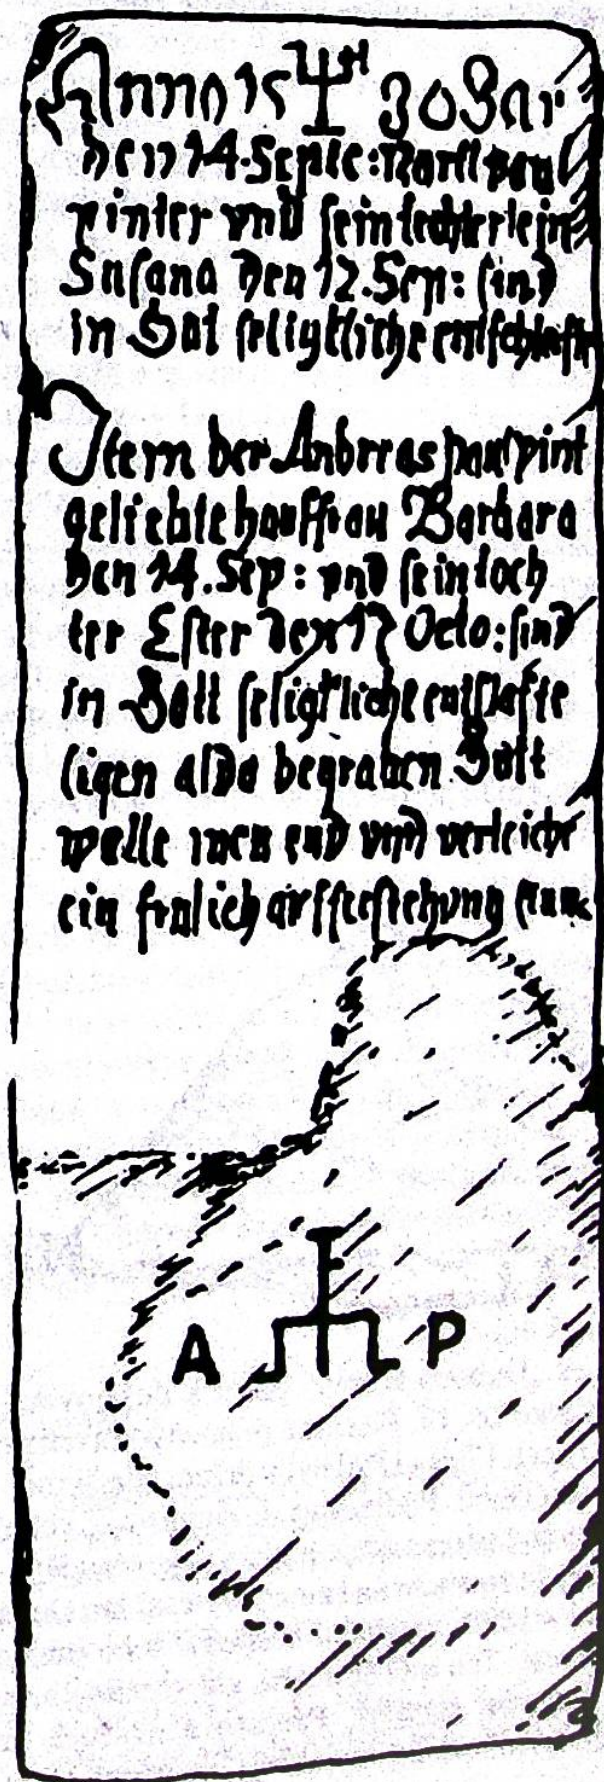 Anno 15 30 Jar
den 14. Septe: Narll pau
pinter vnd sein techterlein
Susana den 12. Sep: sind
in Got seligkliche entschlafte
Item der Andreas paurpint
geliebte hausfrau Barbara
den 14. Sep: vnd sein toch
ter Ester den 17 Octo: sind
in Gott seligkliche entslafte
ligen alda begraben Gott
welle vnd verleiche
ein frolich aufferstehung
A P